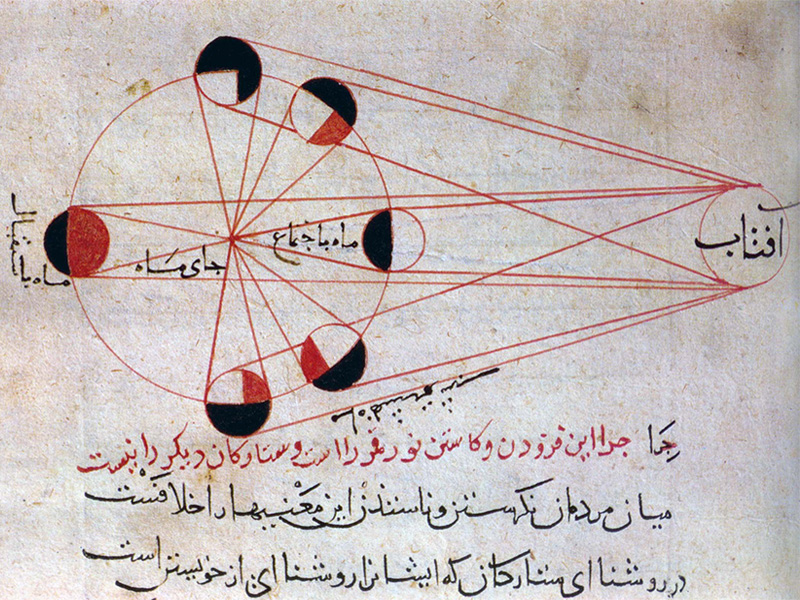 افتاب
ماه باجتماع
جای ماه
ماه باستقبال
جرا جرا این فزودن و کاستن نور قمر را است و ستارکان دیکر را نیست
میان مردمان نکرستن و این معنیها را
در روشنا ای ستارکان که ایشانرا روشنا ای از خویشتن است